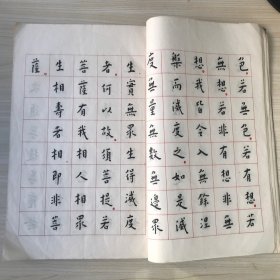 色若無色若有想若
無想若非有想非無
想我皆令入無餘涅
槃而滅度之如是滅
度無量無數無邊眾
生實無眾生得滅度
者何以故須菩提若
菩薩有我相人相眾
生相壽者相即非菩
薩